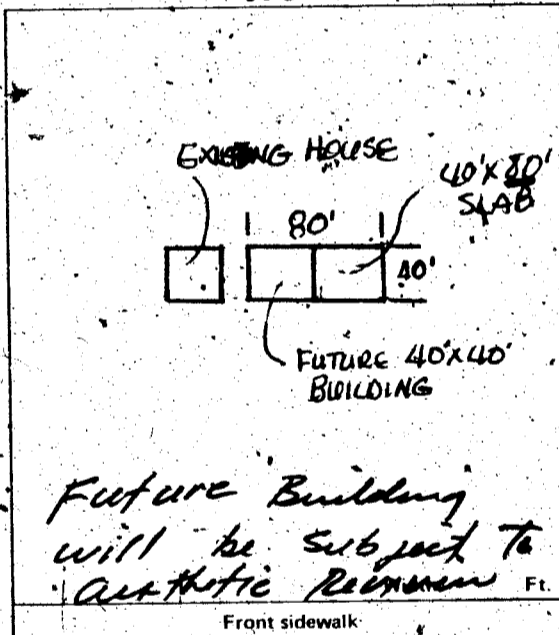 EXISTING HOUSE
40'X80'
SLAB
80'
40'
FUTURE 40'X40'
BUILDING
Future Building
will be subject To
aesthetic Ft.
Front sidewalk